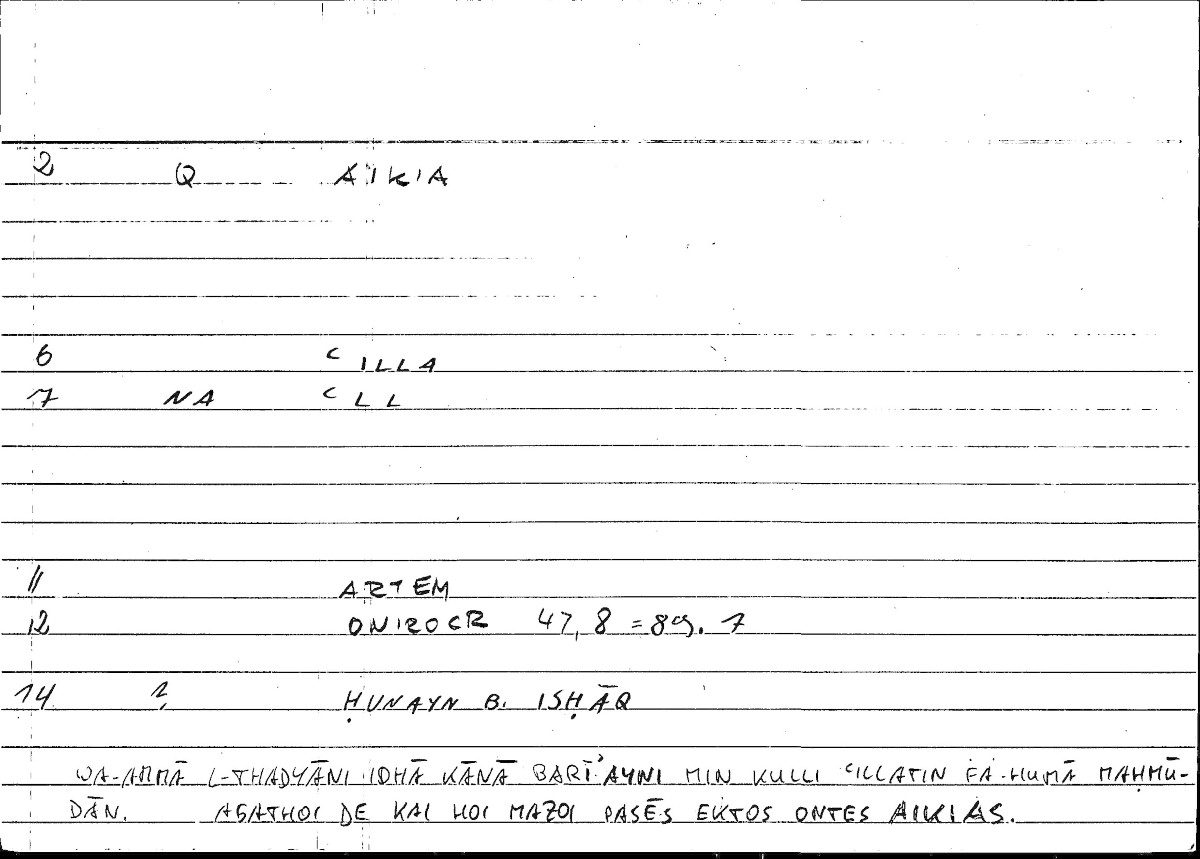 2 Q AIKIA
6 ʿILLA
7 NA ʿLL
11 ARTEM
12 ONIROCR 47, 8 = 89. 7
14 2, ḤUNAYN B. ISḤĀQ
WA-AMMĀ L-THADYĀNI IDHĀ KĀNĀ BARĪʾAYNI MIN KULLI ʿILLATIN FA-HUMĀ MAḤMŪ-
DĀN. AGATHOI DE KAI HOI MAZOI PASĒS EKTOS ONTES AIKIAS.